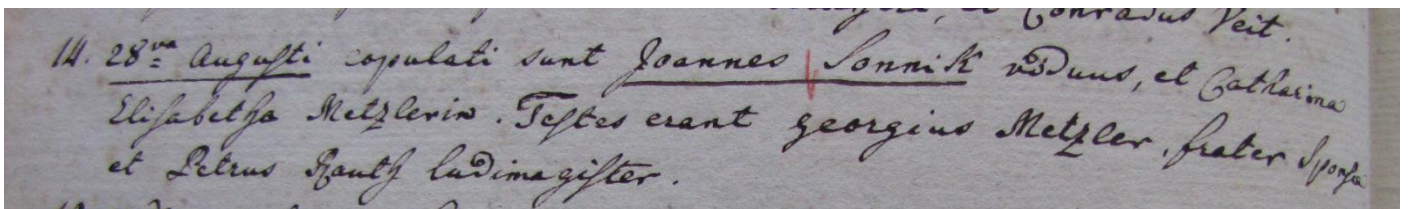 et Conradus Veit.
14. 28va Augusti copulati sunt Joannes Sonnik viduus, et Catharina
Elisabetha Metzlerin. Testes erant georgius Metzler, frater Sponsæ
et Petrus Rauth ludimagister.